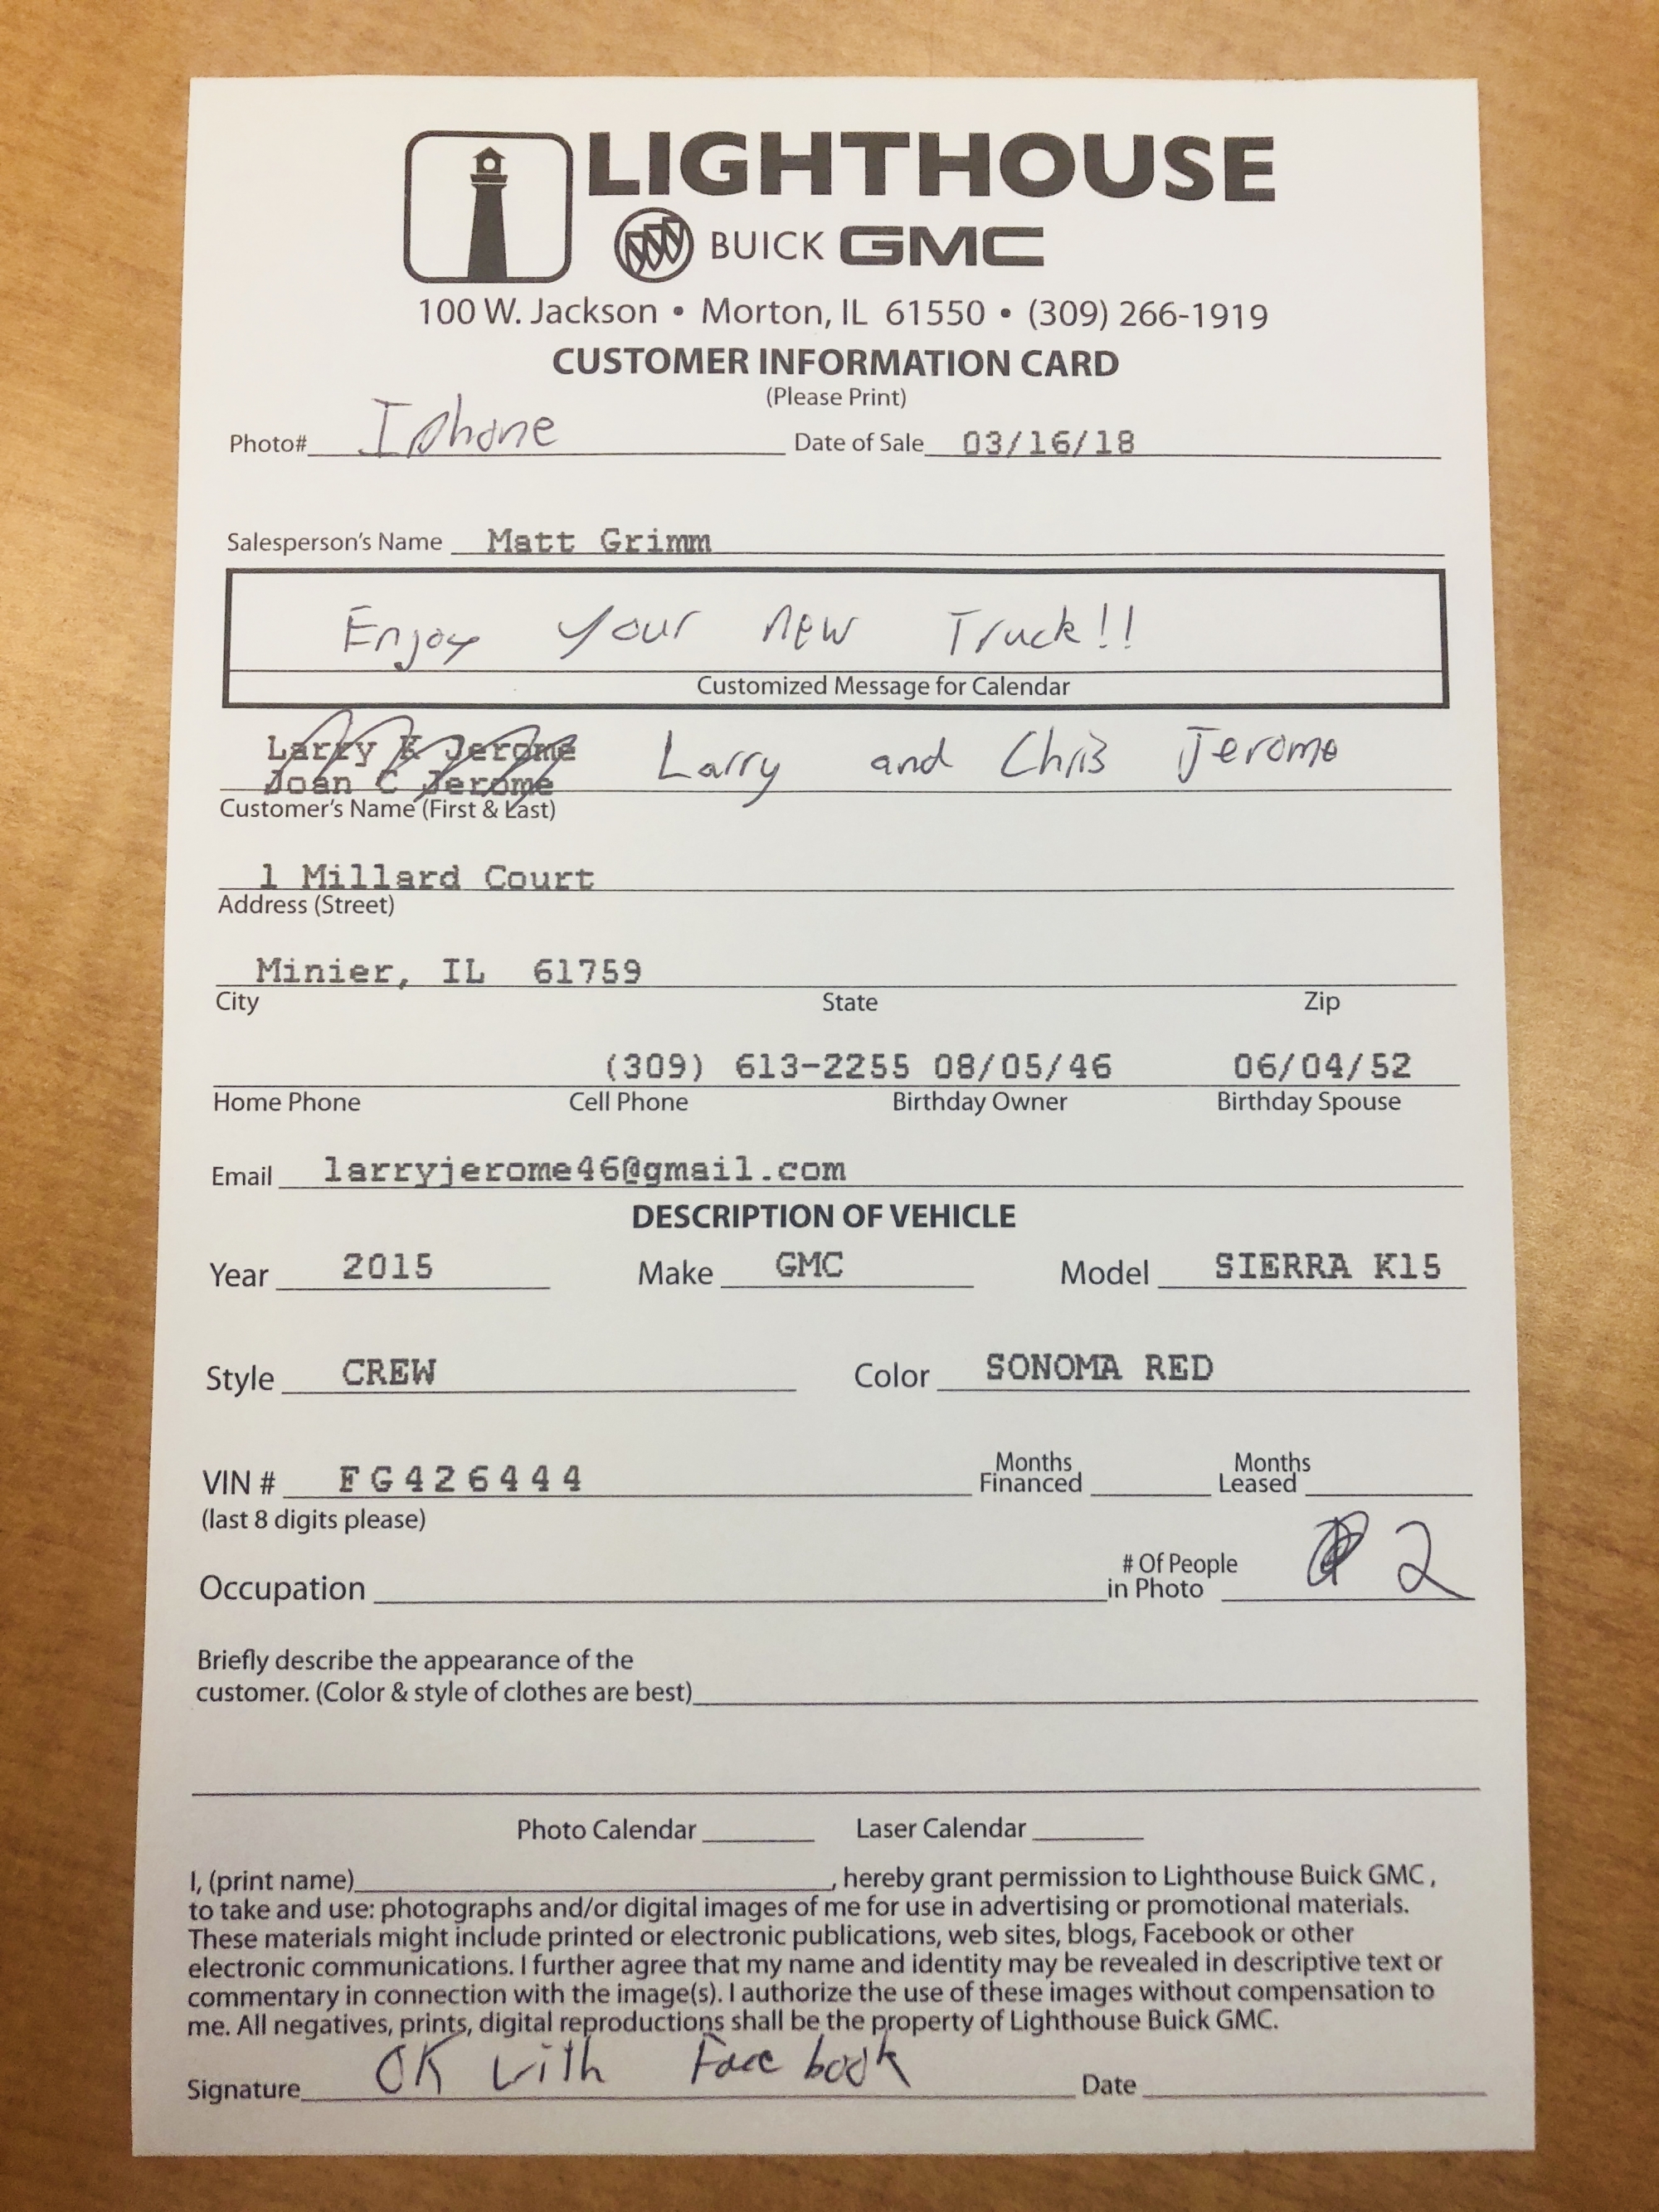 LIGHTHOUSE
BUICK GMC
100 W. Jackson • Morton, IL 61550 • (309) 266-1919
CUSTOMER INFORMATION CARD
(Please Print)
Photo# Iphone Date of Sale 03/16/18
Salesperson's Name Matt Grimm
Enjoy your new Truck!!
Customized Message for Calendar
Larry E Jerome
Joan C Jerome Larry and Chris Jerome
Customer's Name (First & Last)
1 Millard Court
Address (Street)
Minier, IL 61759
City State Zip
(309) 613-2255 08/05/46 06/04/52
Home Phone Cell Phone Birthday Owner Birthday Spouse
Email larryjerome46@gmail.com
DESCRIPTION OF VEHICLE
Year 2015 Make GMC Model SIERRA K15
Style CREW Color SONOMA RED
VIN # FG426444 Months Financed Months Leased
(last 8 digits please)
Occupation # Of People in Photo 2
Briefly describe the appearance of the
customer. (Color & style of clothes are best)
Photo Calendar Laser Calendar
I, (print name) , hereby grant permission to Lighthouse Buick GMC ,
to take and use: photographs and/or digital images of me for use in advertising or promotional materials.
These materials might include printed or electronic publications, web sites, blogs, Facebook or other
electronic communications. I further agree that my name and identity may be revealed in descriptive text or
commentary in connection with the image(s). I authorize the use of these images without compensation to
me. All negatives, prints, digital reproductions shall be the property of Lighthouse Buick GMC.
Signature OK with Facebook Date